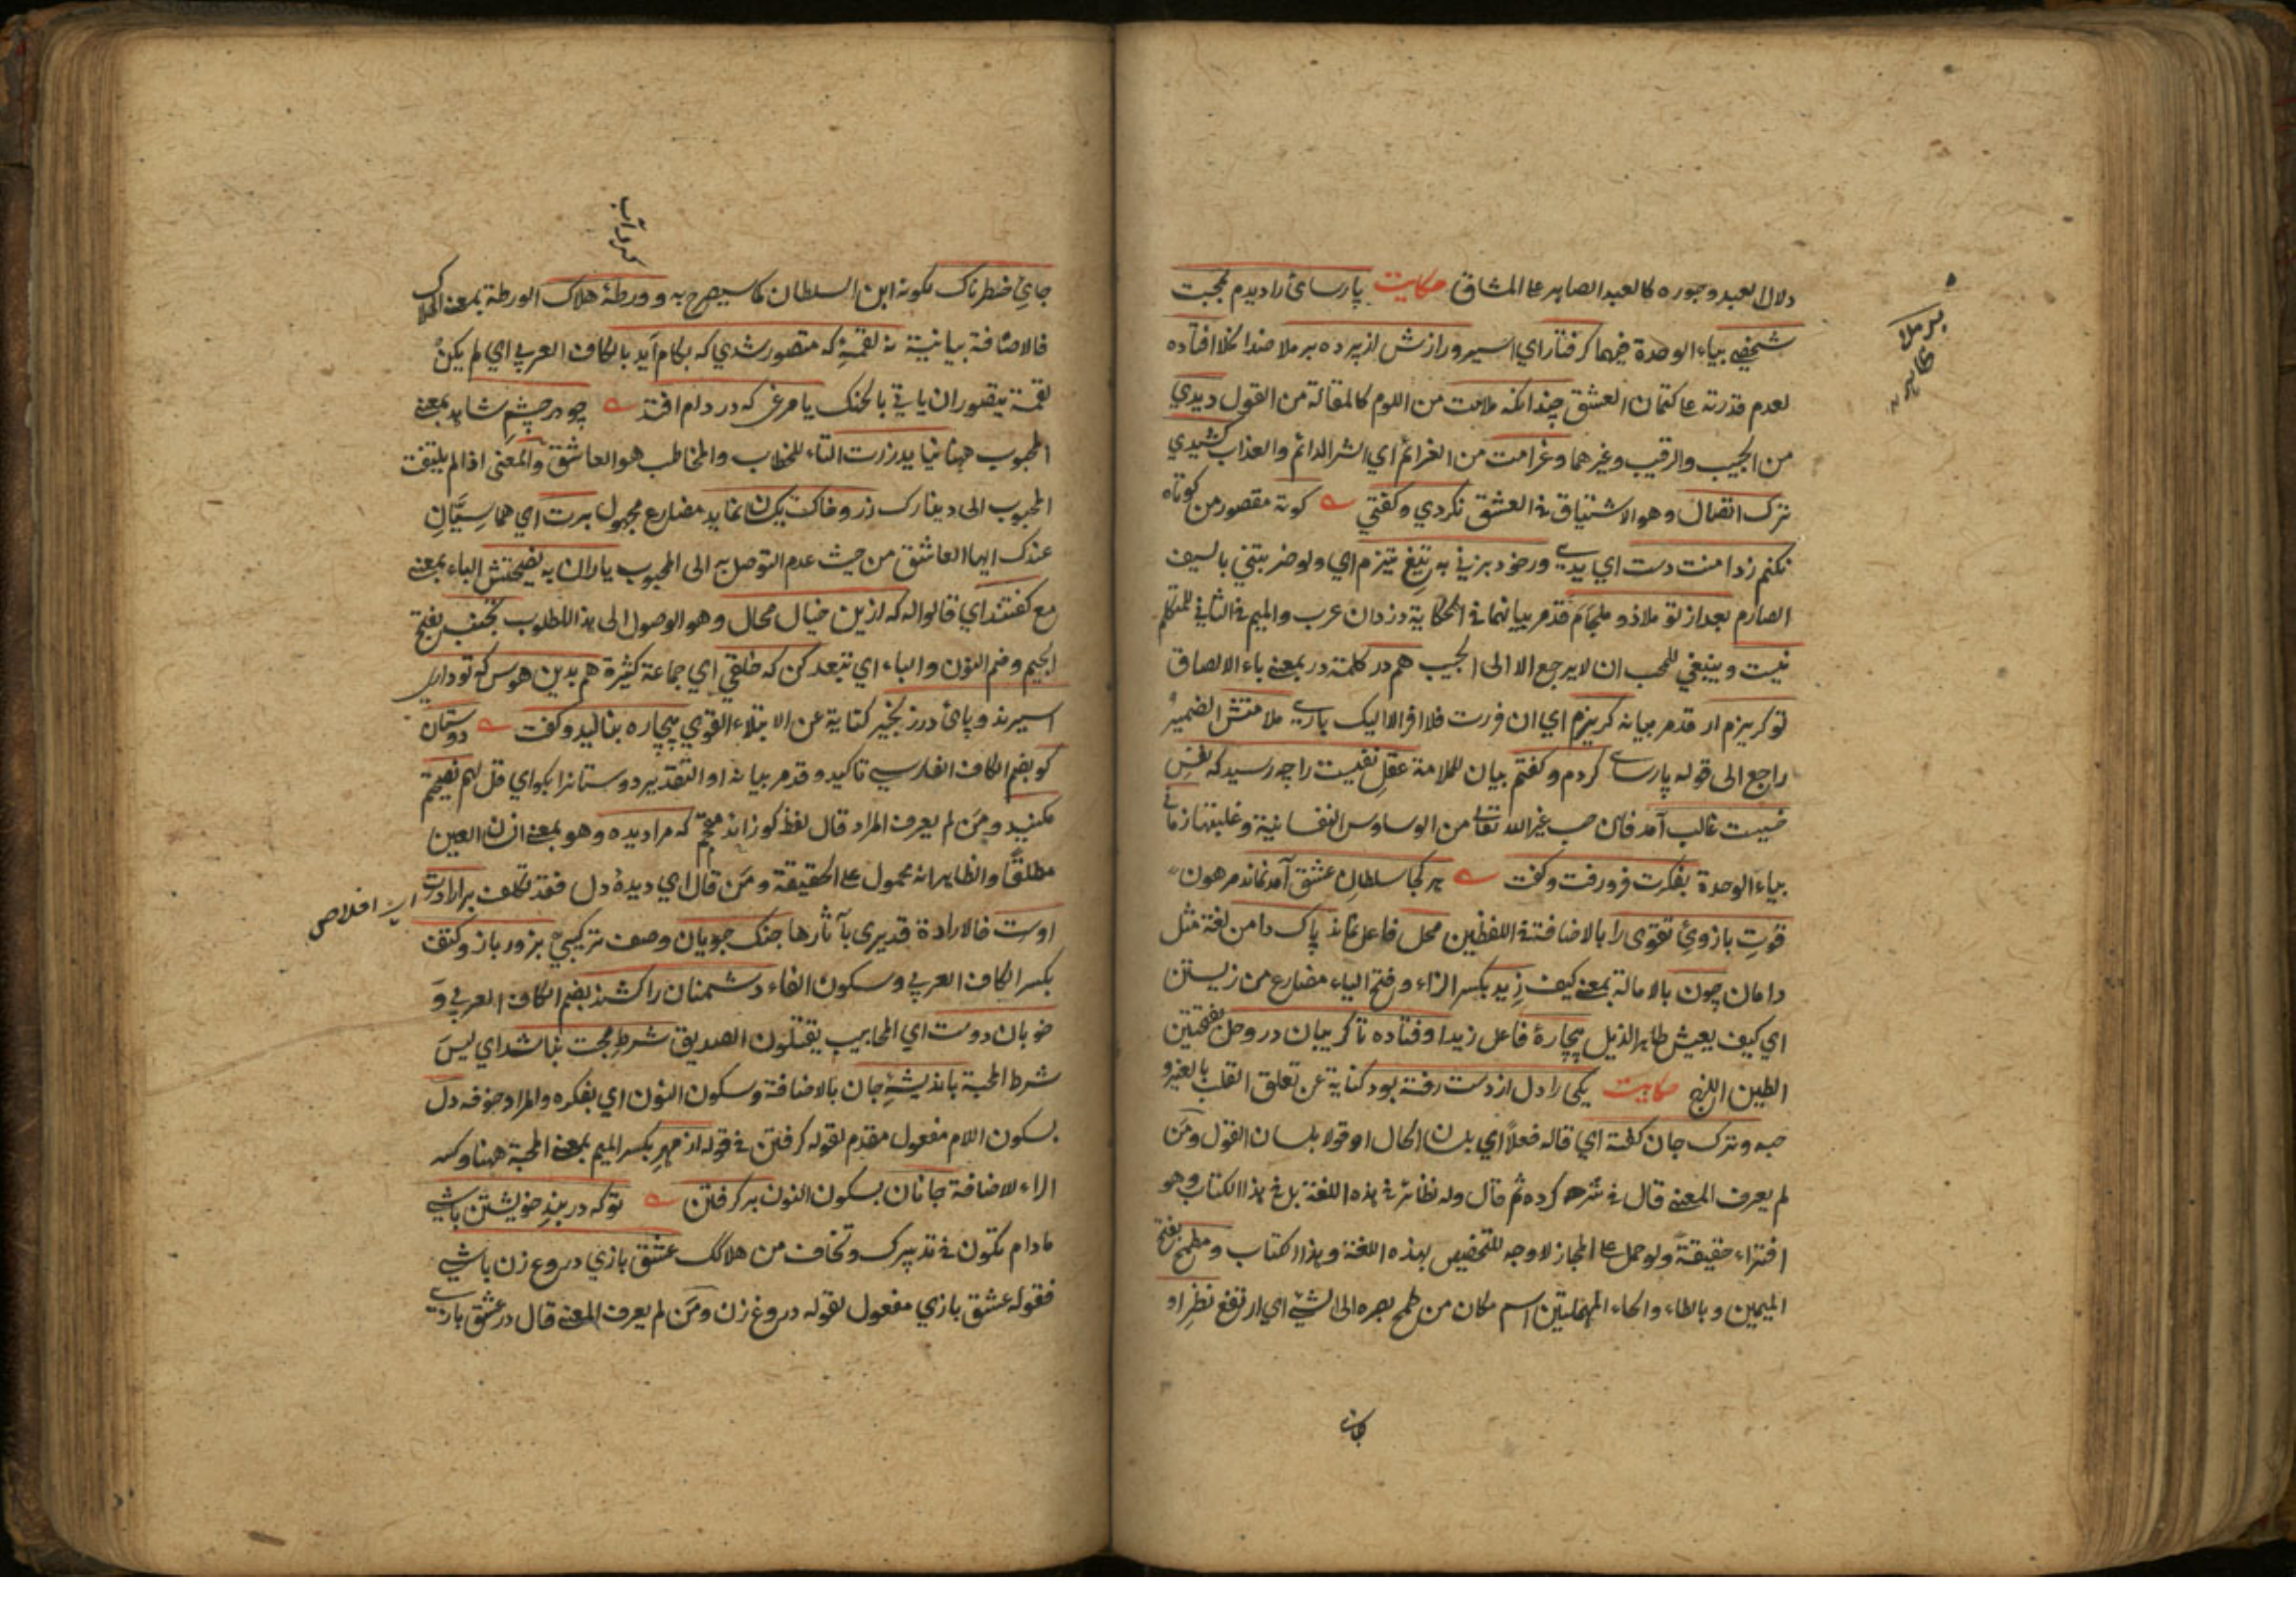 دلال العبد وجوره كالعبد الصابر على المشاق حكايت پارسائى را ديدم بمحبت
شخصى بياء الوحدة فيهما كرفتار اي اسير ورازش از پرده برملا ضد الخلا افتاده
لعدم قدرته على كتمان العشق چندانكه ملامت من اللوم كالمقالة من القول ديدي
من الحبيب والرقيب وغيرهما وغرامت من الغرائم اي الشر الدائم والعذاب كشيدي
ترك اتصال وهو الاشتياق في العشق نكردي وكفتي كوته مقصور من كوتاه
نكنم ز دامنت دست اي يدى ور خود بزنى به تيغ تيزم اي ولو ضربتني بالسيف
الصارم بعد از تو ملاذ و ملجأم قد مر بيانهما في الحكاية دزدان عرب والميم في الثاني للمتكلم
نيست وينبغي للمحب ان لا يرجع الا الى الحبيب هم در كلمة در بمعنى باء الالصاق
تو كريزم ار قد مر بيانه كريزم اي ان فررت فلا افر الا اليك بارى ملامتش الضمير
راجع الى قوله پارساى كردم وكفتم بيان للملامة عقل نفيست را چه رسيد كه نفس
خسيست غالب آمد فان حب غير الله تعالى من الوساوس النفسانية وغلبتها زمانى
بياء الوحدة بفكرت فرو رفت وكفت هر كجا سلطان عشق آمد نماند مرهون
قوت بازوئ تقوى را بالاضافة في اللفظين محل فاعل نماند پاك دامن لغة مثل
دامان چون بالامالة بمعنى كيف زيد بكسر الزاء وفتح الياء مضارع من زيستن
اي كيف يعيش طاهر الذيل بيچارۀ فاعل زيد اوفتاده تا كريبان در وحل بفتحتين
الطين اللزج حكايت يكى را دل از دست رفته بود كناية عن تعلق القلب بالغير و
حبه وترك جان كفته اي قاله فعلاً اي بلسان الحال او قولا بلسان القول ومن
لم يعرف المعنى قال في شرحه كرده ثم قال وله نظائر في هذه اللغة بل في هذا الكتاب وهو
افتراء حقيقة ولو حمل على المجاز لا وجه للتخصيص بهذه اللغة وهذا الكتاب ومطمح بفتح
الميمين وبالطاء والحاء المهملتين اسم مكان من طمح بصره الى الشيء اي ارتفع نظر او
برملا
ظاهر
جاى خطرناك لكونه ابن السلطان كما سيصرح به وورطۀ هلاك الورطة بمعنى الهلاك
فالاضافة بيانية نه لقمۀ كه متصور شدي كه بكام آيد بالكاف العربي اي لم يكن
لقمة يتصور ان ياتي بالحنك يا مرغى كه در دام افتد چو در چشم شاهد بمعنى
المحبوب ههنا نيايد زرت التاء للخطاب والمخاطب هو العاشق والمعنى اذا لم يلتفت
المحبوب الى دينارك زر وخاك يكسان نمايد مضارع مجهول برت اي هما سيّان
عندك ايها العاشق من حيث عدم التوصل به الى المحبوب ياران به نصيحتش الباء بمعنى
مع كفتند اي قالوا له كه ازين خيال محال وهو الوصول الى هذا المطلوب تجنب بفتح
الجيم وضم النون والباء اي تبعد كن كه خلقى اي جماعة كثيرة هم بدين هوس كه تو دارى
اسيرند و پاى در زنجير كناية عن الابتلاء القوي بيچاره بناليد وكفت دوستان
كو بضم الكاف الفارسي تاكيد وقد مر بيانه او التقدير دوستانرا بكو اي قل لهم نصيحتم
مكنيد ومن لم يعرف المراد قال لفظ كو زائد كه مرا ديده وهو بمعنى انسان العين
مطلقاً والظاهر انه محمول على الحقيقة ومن قال اي ديدۀ دل فقد تكلف بر ارادت
اوست فالارادة قد يرى بآثارها جنك جويان وصف تركيبي بزور باز و كتف
بكسر الكاف العربي وسكون الفاء دشمنان را كشند بضم الكاف العربي و
خوبان دوست اي المحابيب يقتلون الصديق شرط محبت نباشد اي ليس
شرط المحبة بانديشۀ جان بالاضافة وسكون النون اي بفكره والمراد خوفه دل
بسكون اللام مفعول مقدم لقوله كرفتن في قوله از مهر بكسر الميم بمعنى المحبة ههنا وكسر
الراء للاضافة جانان بسكون النون بر كرفتن تو كه در بند خويشتن باشى
مادام تكون في تدبيرك وتخاف من هلاكك عشق بازي دروغ زن باشى
فقوله عشق بازي مفعول لقوله دروغ زن ومن لم يعرف المعنى قال در عشق بازى
كرداب
اى اخلاص